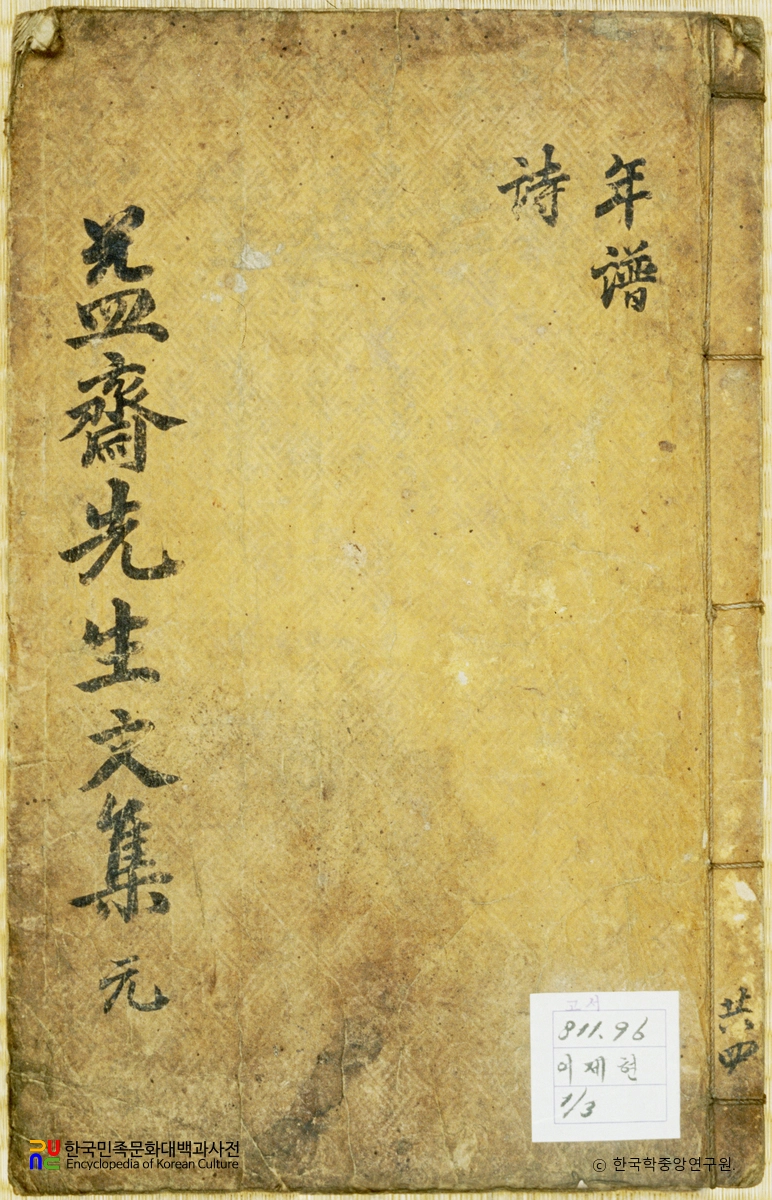 年譜
詩
益齋先生文集 元
共四
고서
811.96
이제현
1/3
한국민족문화대백과사전
Encyclopedia of Korean Culture
© 한국학중앙연구원